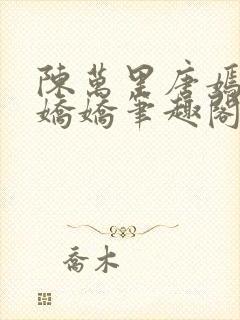 陳萬里唐嫣
嬌嬌筆趣閣
喬木